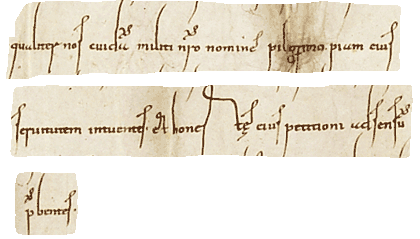 qualiter nos cuidā militi nr̄o nomine piligrimo pium eius
seruitutem intuentes et hones tę eius petitioni adsensū
p̄bentes.